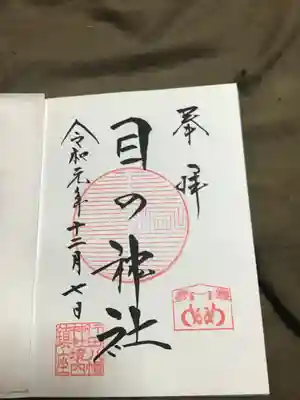 奉拝
目の神社
令和元年十二月七日